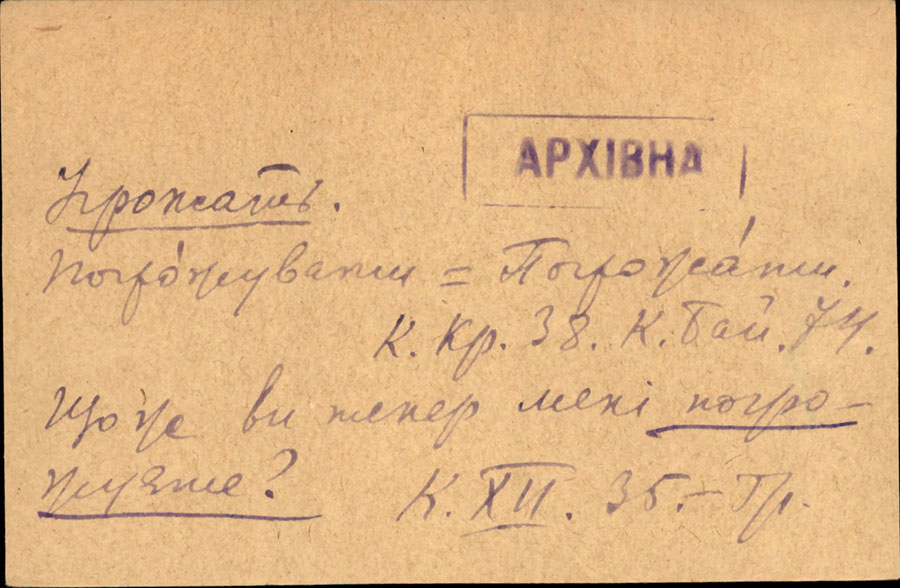 АРХІВНА
Грожать.
Погро́жувати = Погрожа́ти.
К. Кр. 38. К. Бай. 74.
Що же ви тепер мені погро-
жуєте?
К. XII. 35.– Гр.